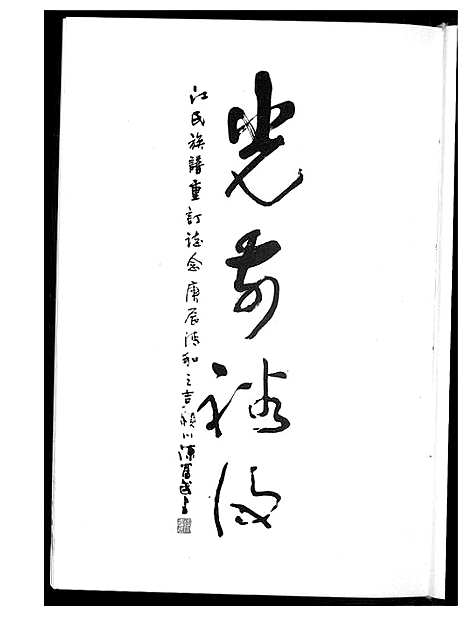 光前裕後
江氏族譜重訂誌念 庚辰清和之吉 潁川陳